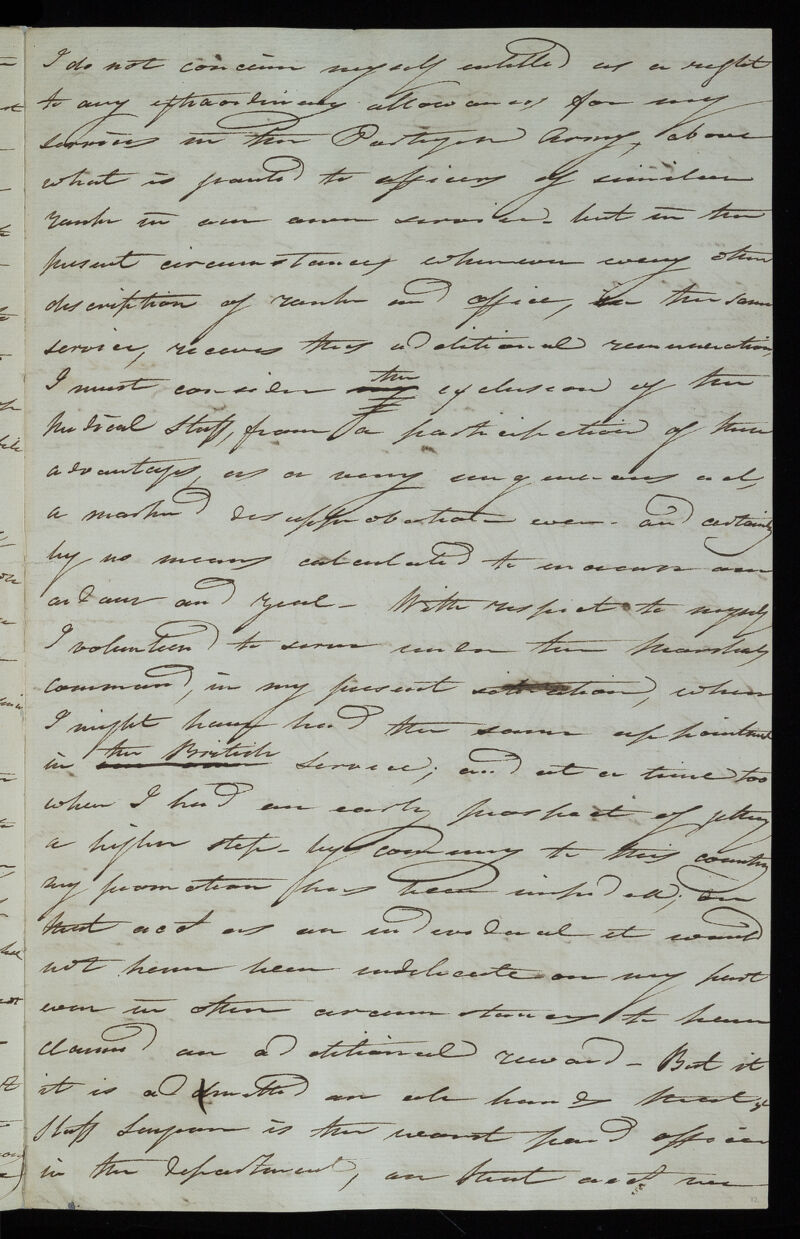 I do not conceive myself entitled as a right
to any extraordinary allowances for my
services in the Portuguese Army, above
what is granted to officers of similar
rank in our own service - but in the
present circumstances whenever every other
description of rank and office, in the same
service, receives this additional remuneration,
I must consider the exclusion of the
Medical Staff, from a participation of these
advantages, as a very ungenerous act,
a marked disapprobation even - and certainly
by no means calculated to increase our
ardour and zeal - With respect to myself
I volunteered to serve under the Marshals
command, in my present situation, when
I might have had the same appointment
in the British service; and at a time too
when I had an early prospect of getting
a higher step - by coming to this country
my promotion has been impeded; on
that acct as an individual it would
not have been indelicate on my part
even in other circumstances to have
claimed an additional reward - But it
it is admitted on all hands that ye
Staff Surgeon is the worst paid officer
in the department, on that acct we